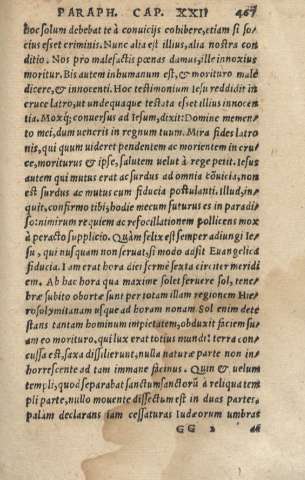 PARAPH. CAP. XXII 467
hoc solum debebat te à conuicijs cohibere, etiam si so/
cius esset criminis. Nunc alia est illius, alia nostra con
ditio. Nos pro malefactis pœnas damus, ille innoxius
moritur. Bis autem inhumanum est, & morituro male
dicere, & innocenti. Hoc testimonium Iesu reddidit in
cruce latro, ut undequaque testata esset illius innocen
tia. Moxq́; conuersus ad Iesum, dixit: Domine memen
to mei, dum ueneris in regnum tuum. Mira fides latro
nis, qui quum uideret pendentem ac morientem in cru/
ce, moriturus & ipse, salutem uelut à rege petit. Iesus
autem qui mutus erat ac surdus ad omnia cōuicia, non
est surdus ac mutus cum fiducia postulanti. Illud, in/
quit, confirmo tibi, hodie mecum futurus es in paradi/
so: nimirum requiem ac refocillationem pollicens mox
à peracto supplicio. Quàm felix est semper adiungi Ie/
su, qui nusquam non seruat, si modo adsit Euangelica
fiducia. I am erat hora diei fermè sexta circiter meridi
em. Ab hac hora qua maxime solet feruere sol, tene/
bræ subito obortæ sunt per totam illam regionem Hie/
rosolymitanam usque ad horam nonam Sol enim dete
stans tantam hominum impietatem, obduxit faciem su/
am eo morituro, qui lux erat totius mundi: terra con/
cussa est, saxa dissilierunt, nulla naturæ parte non in/
horrescente ad tam immane facinus. Quin & uelum
templi, quod separabat sanctum sanctorū à reliqua tem
pli parte, nullo mouente dissectum est in duas partes,
palàm declarans iam cessaturas Iudæorum umbras
GG 2